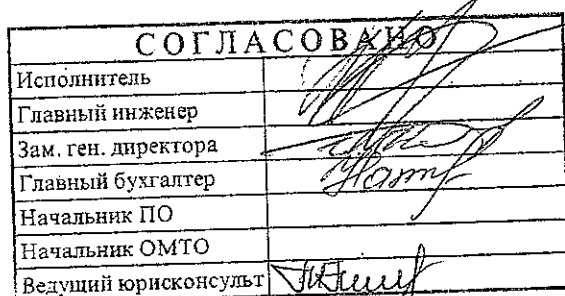 СОГЛАСОВАНО
Исполнитель
Главный инженер
Зам. ген. директора
Главный бухгалтер
Начальник ПО
Начальник ОМТО
Ведущий юрисконсульт